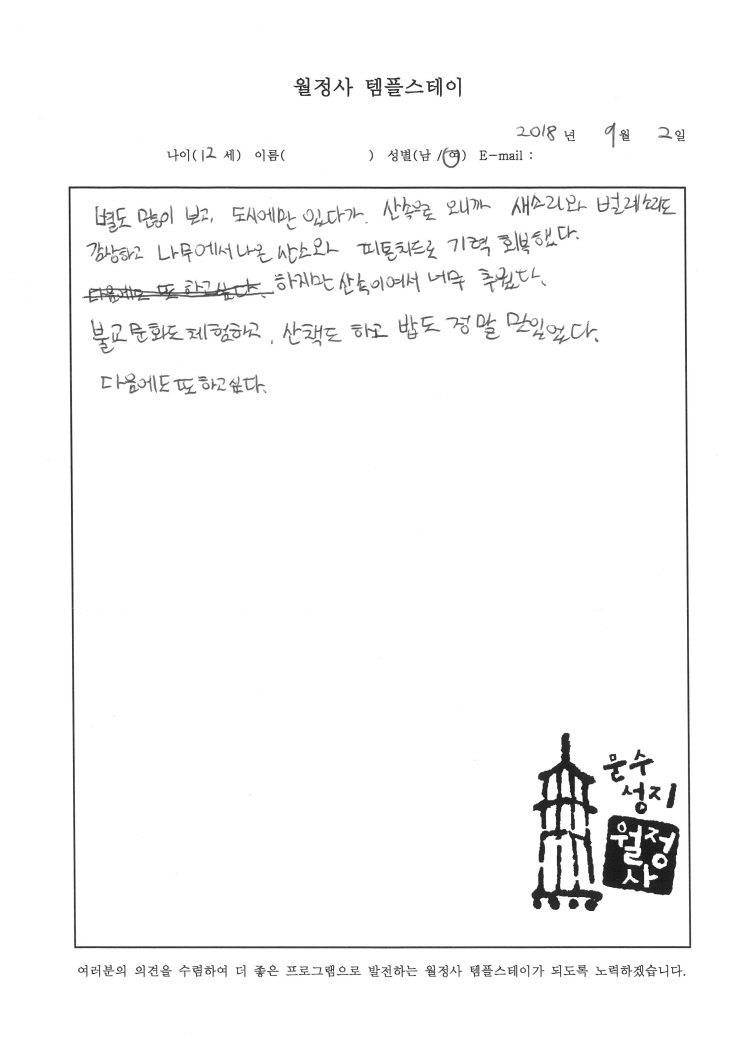 월정사 템플스테이
2018 년 9 월 2 일
나이(12 세) 이름( ) 성별(남 /여) E-mail :
별도 많이 보고, 도시에만 있다가. 산속으로 오니까 새소리와 벌레소리도
감상하고 나무에서 나온 산소와 피톤치드로 기력 회복했다.
다음에도 또 하고싶다. 하지만 산속이여서 너무 추웠다.
불교문화도 체험하고, 산책도 하고 밥도 정말 맛있었다.
다음에도 또 하고싶다.
문수
성지
월정
사
여러분의 의견을 수렴하여 더 좋은 프로그램으로 발전하는 월정사 템플스테이가 되도록 노력하겠습니다.